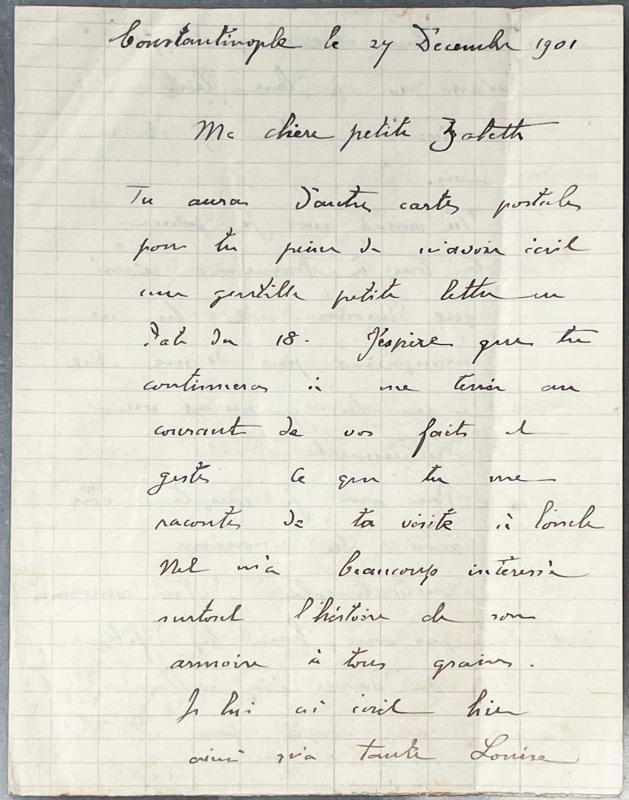 Constantinople le 27 Decembre 1901
Ma chère petite
Tu auras d'autres cartes postales
pour ta peine de m'avoir écrit
une gentille petite lettre en
date du 18. J'espère que tu
continueras à me tenir au
courant de vos faits et
gestes ce que tu me
racontes de ta visite à l'oncle
Nel m'a beaucoup interessé
surtout l'histoire de son
armoire à tous grains.
Je lui ai écrit hier
ainsi qu'a tante Louise